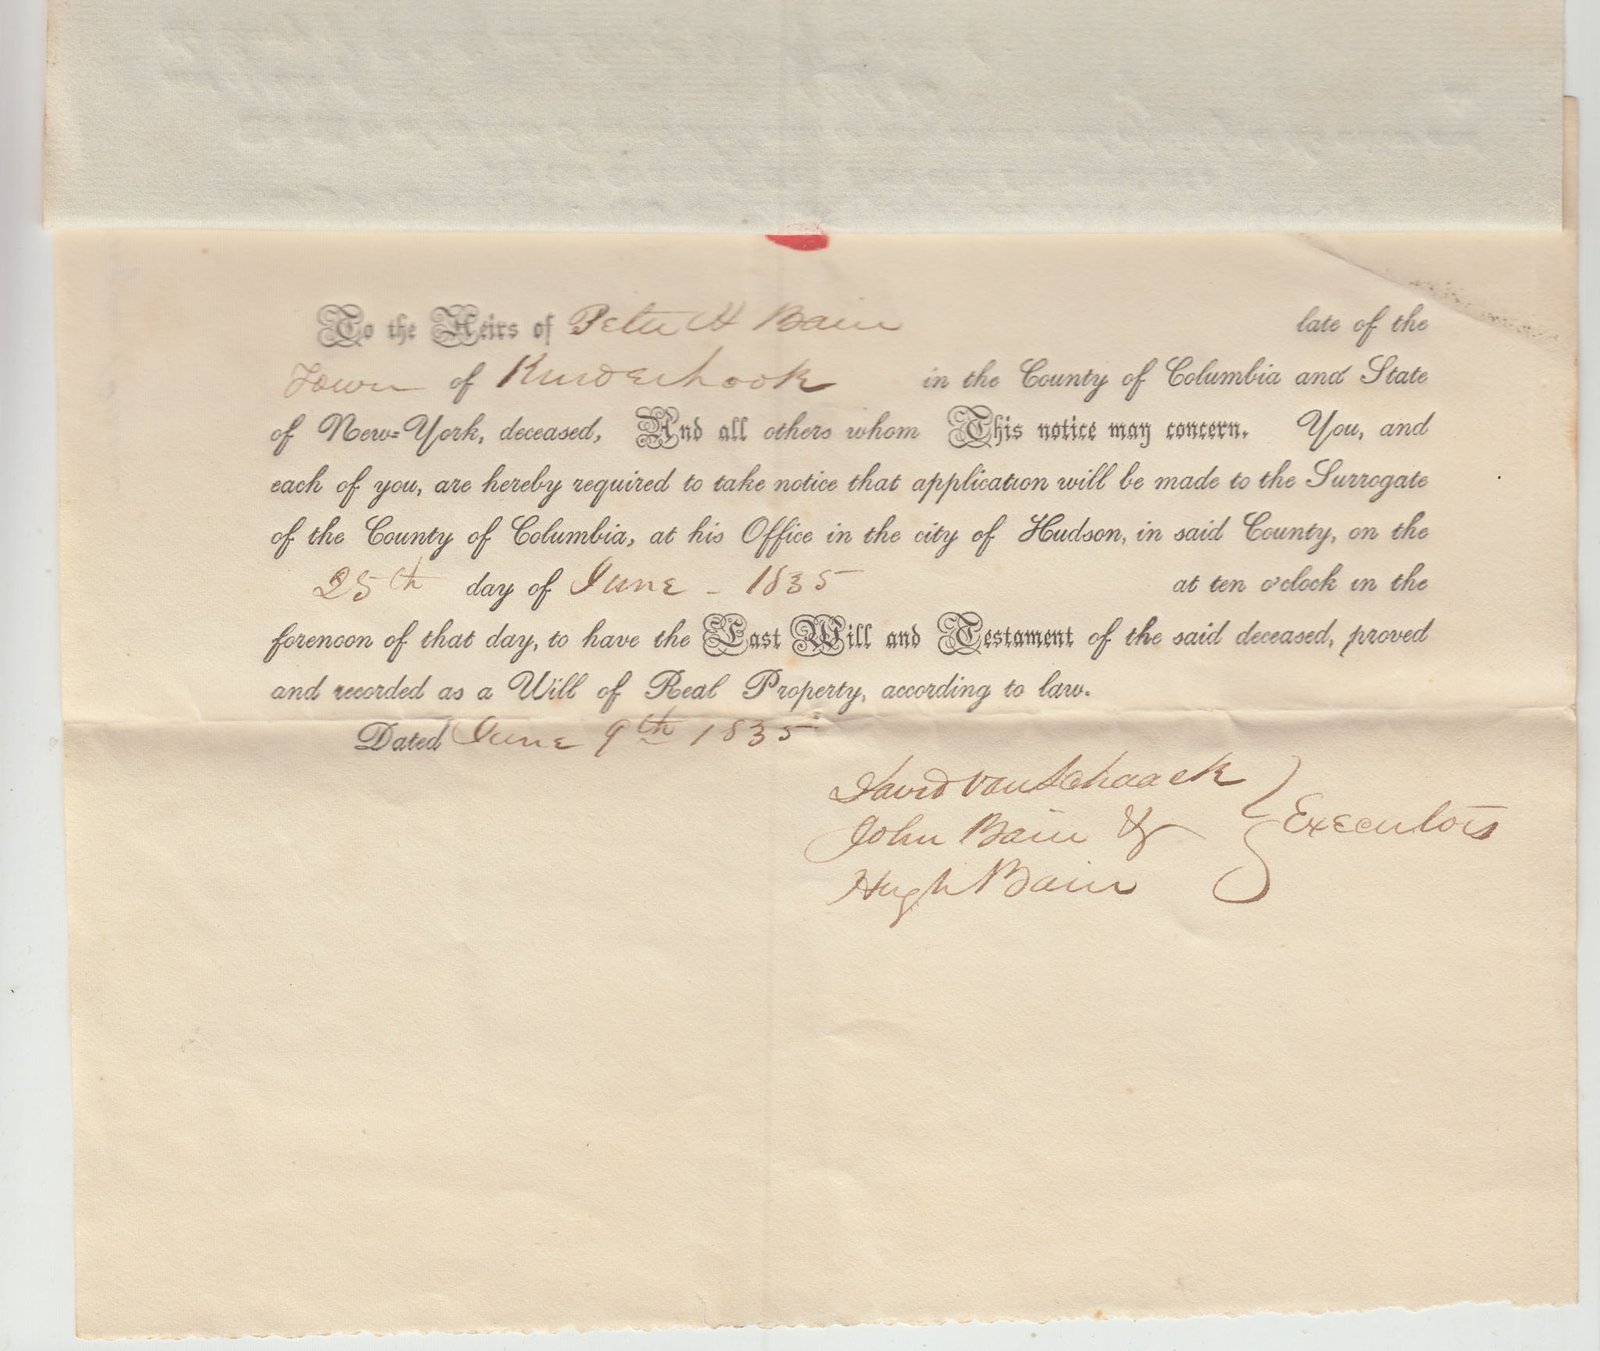 To the Heirs of Peter H Bain late of the
Town of Kinderhook in the County of Columbia and State
of New=York, deceased, And all others whom This notice may concern. You, and
each of you, are hereby required to take notice that application will be made to the Surrogate
of the County of Columbia, at his Office in the city of Hudson, in said County, on the
25th day of June - 1835 at ten o'clock in the
forenoon of that day, to have the Last Will and Testament of the said deceased, proved
and recorded as a Will of Real Property, according to law.
Dated June 9th 1835
David Van Schaack
John Bain & Executors
Hugh Bain